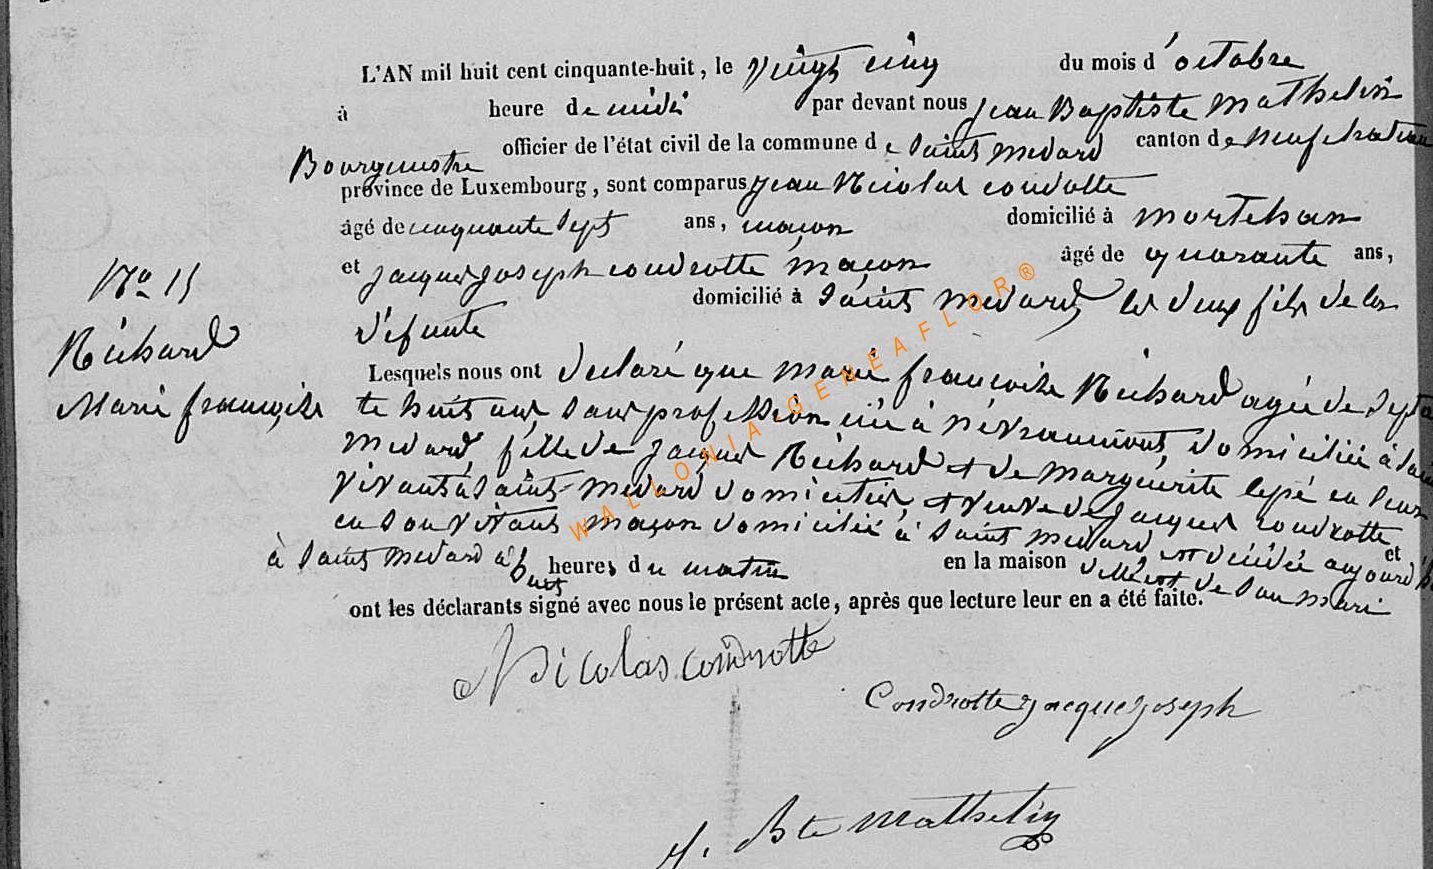 L'AN mil huit cent cinquante-huit, le vingt cinq du mois d'octobre
à heure de midi par devant nous jean Baptiste Mathelin
Bourgmestre officier de l'état civil de la commune de Saint Medard canton de neufchateau
province de Luxembourg, sont comparus jean Nicolas condrotte
âgé de cinquante sept ans, maçon domicilié à mortehan
et jacques joseph condrotte maçon âgé de quarante ans,
domicilié à Saint Medard les deux fils de la
défunte
No 15
Richard
Marie françoise
Lesquels nous ont déclaré que marie françoise Richard agée de septa
te huit ans, sans profession née à névraumont, domiciliée à Saint
Medard fille de jacques Richard et de marguerite lepé en leur
vivant à Saint-Medard domiciliés, et veuve de jacques condrotte
en son vivant maçon domicilié à Saint Medard est décédée aujourd'hui
à Saint Medard à huit heures du matin en la maison de son mari et
ont les déclarants signé avec nous le présent acte, après que lecture leur en a été faite.
Nicolas condrotte
Condrotte jacque joseph
j. Bte Mathelin
WALLONIA-GENEAFLOR®